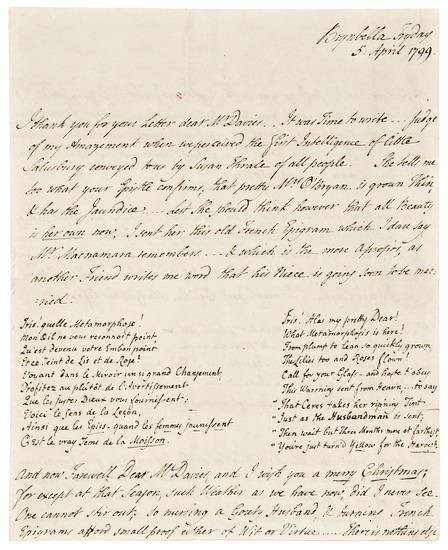 Brynbella Fryday
5 April 1799.
I thank you for your Letter dear Mr. Davies. It was Time to write... judge
of my Amazement when we perceived the First Intelligence of little
Salusbury conveyed to us by Susan Thrale of all people. She tells me
too what your Epistle confirms, that pretty Mrs. O'Bryan is grown Thin
& has the Jaundice.... Lest She should think however that all Beauty
is her own now, I sent her this old French Epigram which I dare say
Mrs. Macnamara remembers... & which is the more apropòs, as
another Friend writes me word that his Niece is going soon to be mar-
ried.
Iris! quelle Metamorphose!
Mon Oeil ne vous reconnoit point,
Qu'est devenu votre Embonpoint
Et ce Teint de Lis et de Rose?
Voyant dans le Miroir un si grand Changement
Profitez au plutôt de l'Avertissement
Que les justes Dieux vous fournissent:
Voici le Sens de la Leçon,
Ainsi que les Epis quand les femmes jaunissent
C'est le vray Tems de la Moisson.
Iris! Alas my pretty Dear!
What Metamorphosis is here!
From plump to Lean so quickly grown,
The Lilies too and Roses flown!
Call for your Glass and haste t'obey
This Warning sent from Heav'n... to say
"That Ceres takes her rip'ning Tint
"Just as the Husbandman is sent,
"Then wait but three Months more at farthest
"You're just turn'd Yellow for the Harvest.
And now Farewell Dear Mr. Davies, and I wish you a merry Christmas;
for except at that Season, such Weather as we have now, did I never See.
One cannot stir out; so nursing a Gouty Husband & turning French
Epigrams afford small proof either of Wit or Virtue..... There is nothing else